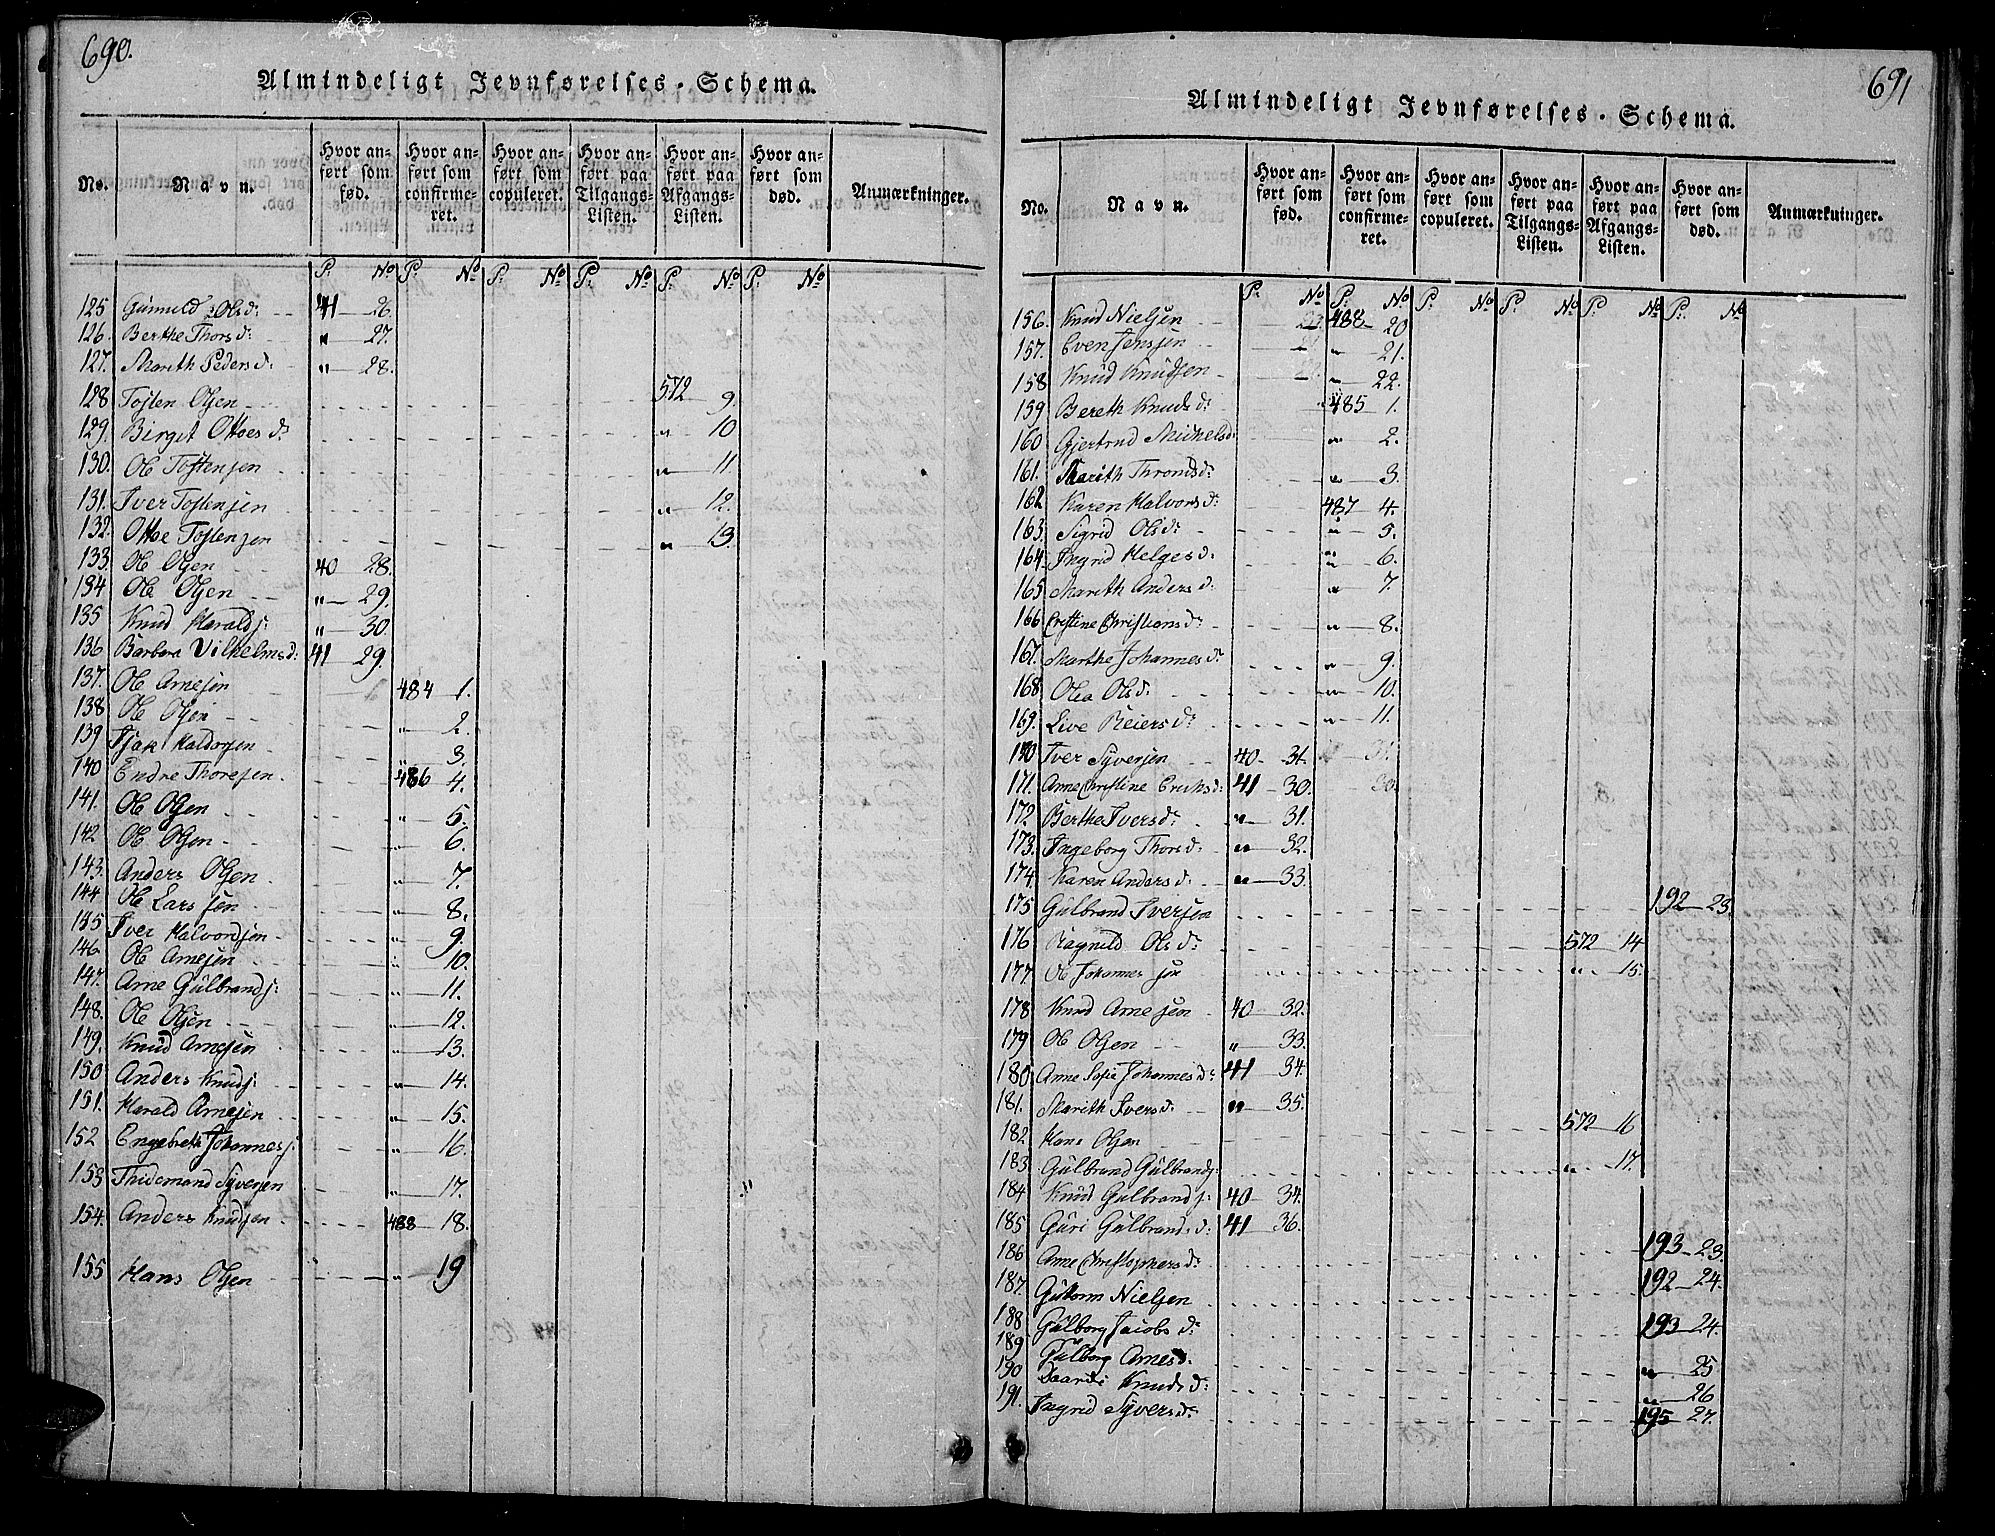 690.
Almindeligt Jevnførelses-Schema.
No. Navn. Hvor anført som fød. Hvor anført som confirmeret. Hvor anført som copuleret. Hvor anført paa Tilgangs-Listen. Hvor anført paa Afgangs-Listen. Hvor anført som død. Anmærkninger.
P. No P. No P. No P. No P. No P. No
125 Gunnild Olsd: 41 26.
126. Berthe Thorsd: " 27.
127. Marith Pedersd: " 28.
128 Tosten Olsen 572 9.
129. Birgit Ottoesd: " 10
130. Ole Tostensen " 11.
131. Iver Tostensen " 12.
132. Ottoe Tostensen " 13.
133. Ole Olsen 40 28.
134 Ole Olsen " 29.
135 Knud Haralds: " 30
136 Barbara Vilhelmsd: 41 29.
137. Ole Arnesen 484 1.
138 Ole Olsen " 2.
139 Haldorsen " 3.
140 Endre Thoresen 486 4.
141. Ole Olsen " 5.
142 Ole Olsen " 6.
143. Anders Olsen " 7.
144 Ole Larssen " 8.
145 Iver Halvordsen " 9.
146. Ole Arnesen " 10.
147. Arne Gulbrands: " 11.
148. Ole Olsen " 12.
149. Knud Arnesen " 13.
150 Anders Knuds: " 14.
151. Harald Arnesen " 15.
152 Engebreth Johanness: " 16.
153 Thidemand Syversen " 17.
154. Anders Knudsen 488 18.
155 Hans Olsen " 19
691
Almindeligt Jevnførelses-Schema.
No. Navn. Hvor anført som fød. Hvor anført som confirmeret. Hvor anført som copuleret. Hvor anført paa Tilgangs-Listen. Hvor anført paa Afgangs-Listen. Hvor anført som død. Anmærkninger.
P. No P. No P. No P. No P. No P. No
156. Knud Nielsen 488 20
157. Even Jensen " 21.
158 Knud Knudsen " 22.
159 Bereth Knudsd: 485 1.
160 Gjertrud Michelsd: " 2.
161. Marith Throndsd: " 3.
162 Karen Halvorsd: 487 4.
163. Sigrid Olsd: " 5.
164. Ingrid Helgesd: " 6.
165 Marith Andersd: " 7.
166 Cristine Christiansd: " 8.
167. Marthe Johannesd: " 9.
168. Olea Olsd: " 10.
169. Live Reiersd: " 11.
170 Iver Syversen 40 31. 31.
171. Anne Christine Eriksd: 41 30. 30.
172. Berthe Iversd: " 31.
173. Ingeborg Thorsd: " 32.
174. Karen Andersd: " 33.
175 Gulbrand Iversen 192 23.
176 Ragnild Olsd: 572 14
177. Ole Johannessen " 15.
178 Knud Arnesen 40 32.
179 Ole Olsen " 33.
180 Anne Sofie Johannesd: 41 34.
181. Marith Iversd: " 35.
182 Hans Olsen 572 16
183. Gulbrand Gulbrands: " 17.
184 Knud Gulbrands: 40 34.
185 Guri Gulbrandsd: 41 36.
186 Anne Christophersd: 193 23.
187. Guttorm Nielsen 192 24.
188 Gulborg Jacobsd: 193 24.
189 Gulborg Arnesd: " 25
190 Knudsd: " 26
191. Ingrid Syversd: 195 27.